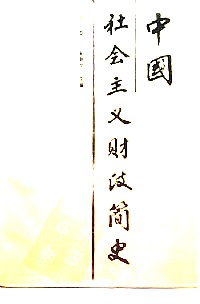 中國
社会主义财政简史